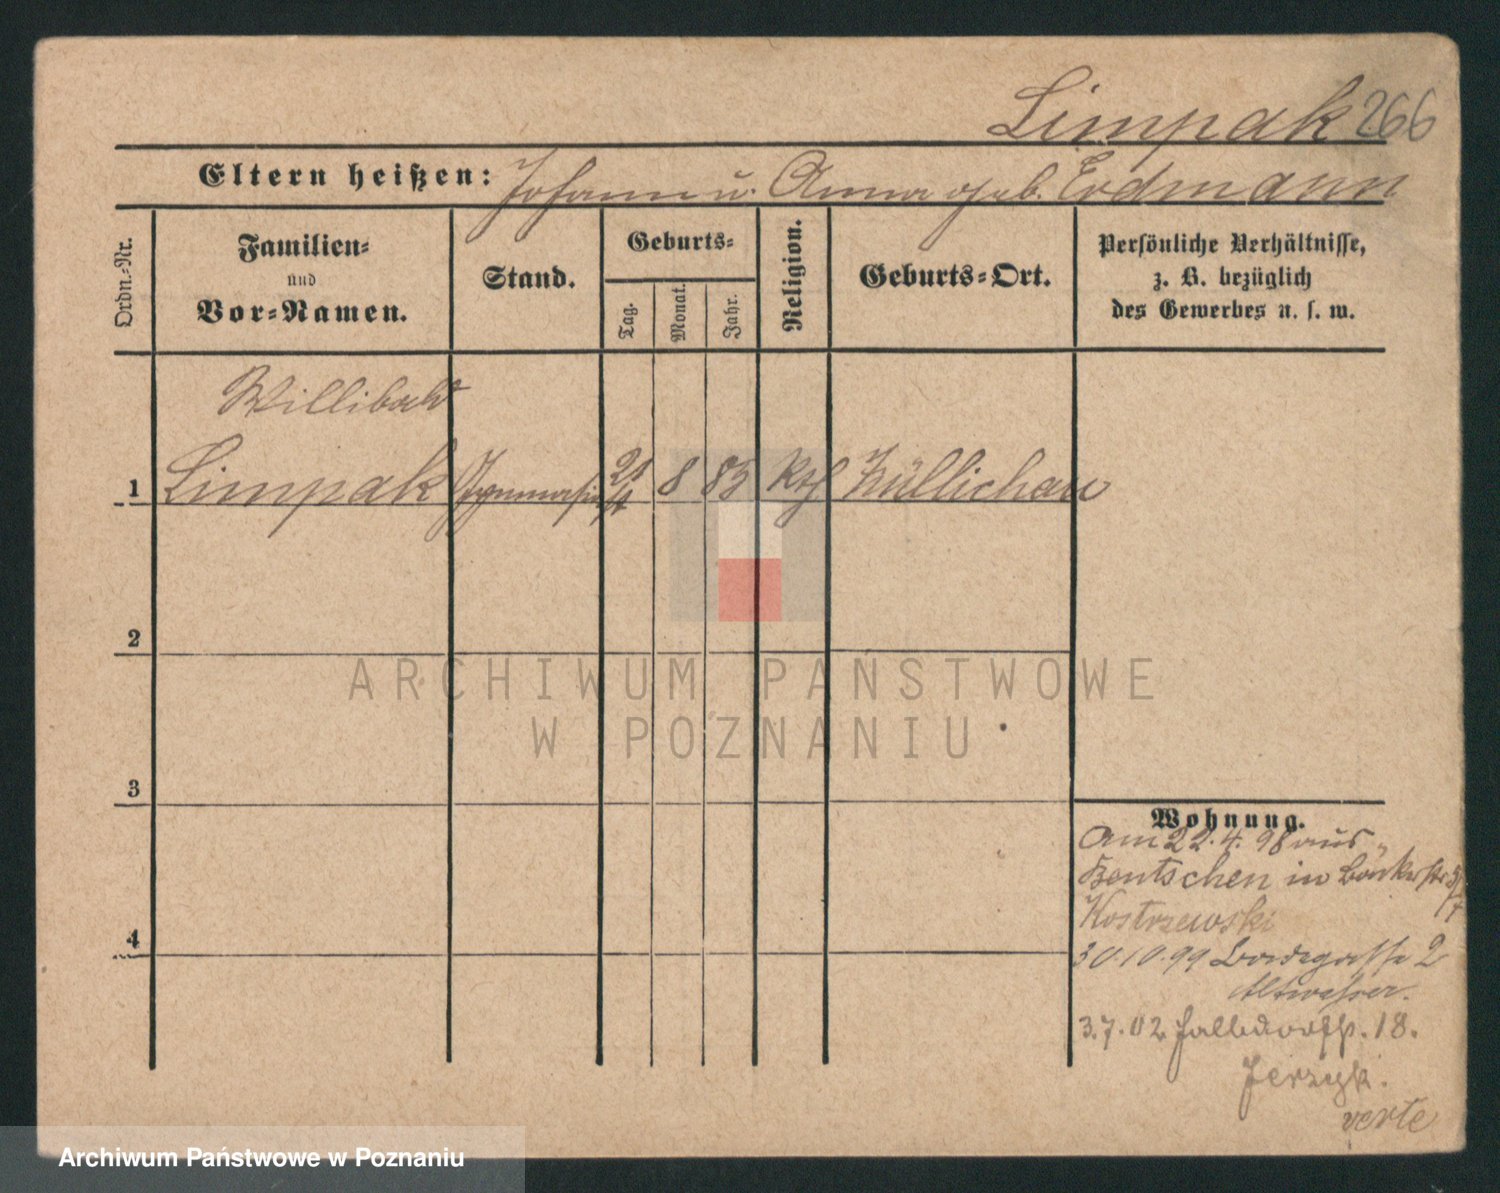 Limpak 266
Eltern heißen: Johann u. Anna geb. Erdmann
Ordn.-Nr.
Familien-
und
Vor-Namen.
Stand.
Geburts-
Tag.
Monat.
Jahr.
Religion.
Geburts-Ort.
Persönliche Verhältnisse,
z. B. bezüglich
des Gewerbes u. s. w.
Willibald
1 Limpak Gymnasiast 21 8 85 Kth Züllichau
2
3
4
Wohnung.
Am 22.4.98 aus
Bentschen in Bäckerstr
Kostrzewski
30.10.99 2
3.7.02 18.
Jerzyk.
verte
ARCHIWUM PAŃSTWOWE
W POZNANIU
Archiwum Państwowe w Poznaniu